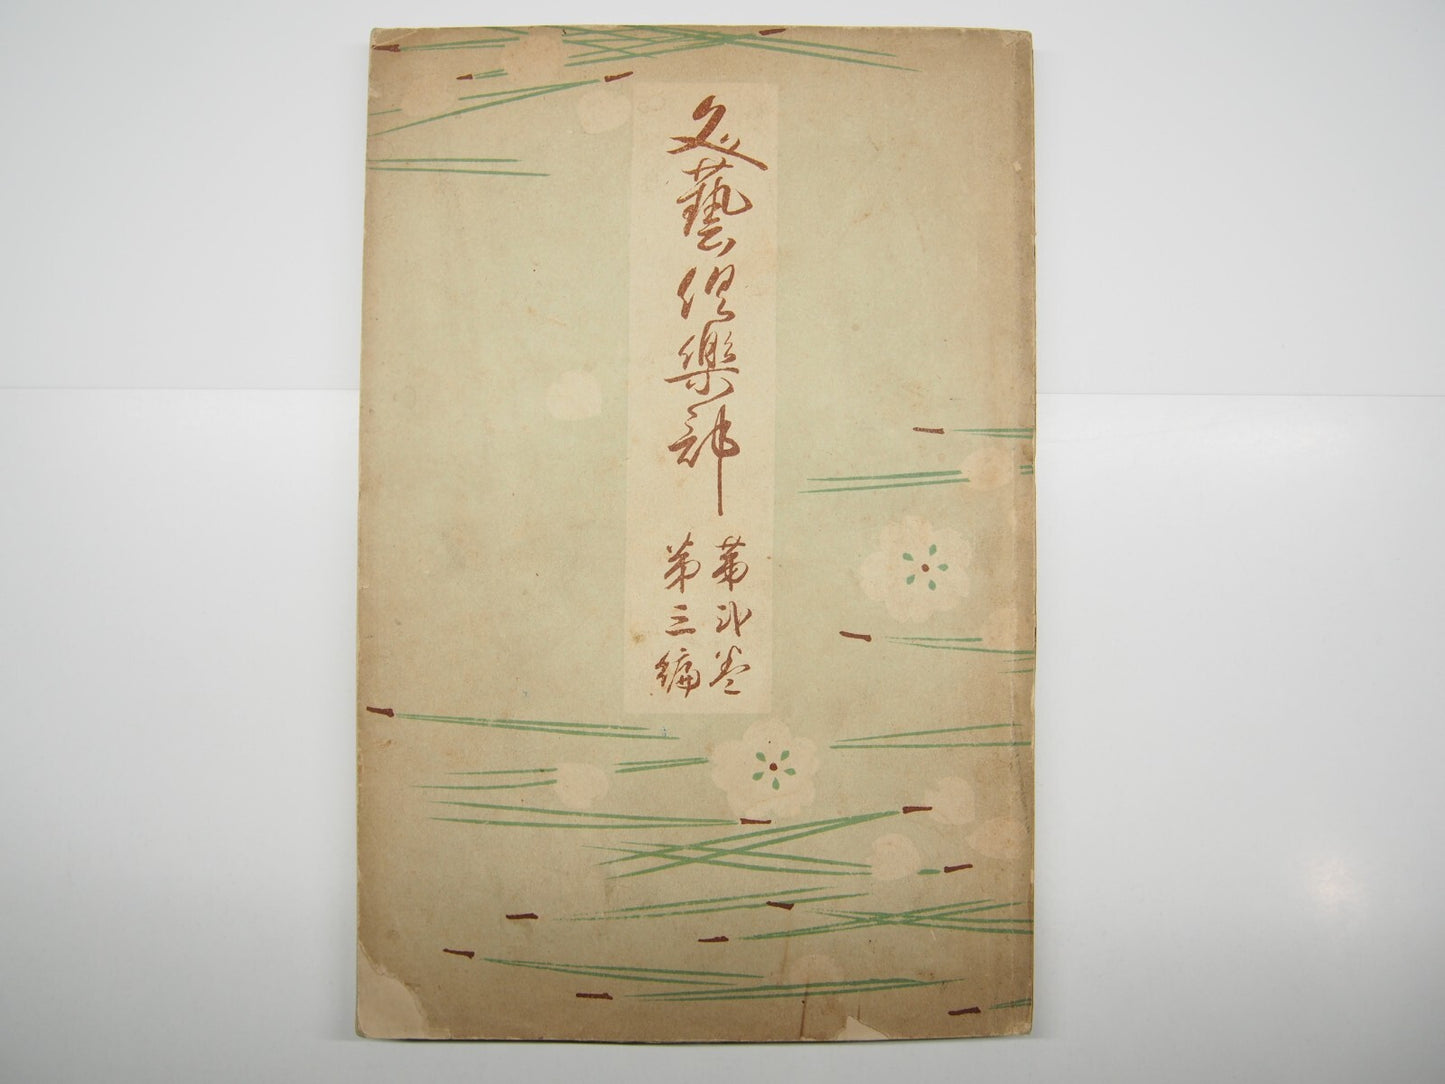 文藝倶樂部
第弐巻
第三編